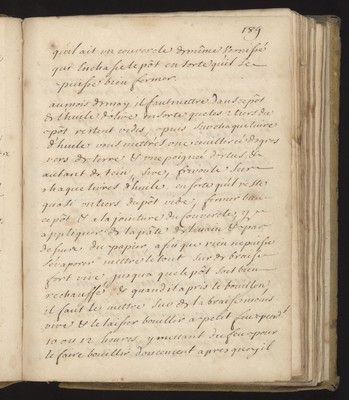 189
qu'il ait un couvercle de même vernissé
qui enchasse le pôt en sorte qu'il se
puisse bien fermer.
au mois de may, il faut mettre dans ce pôt
de l'huile d'olive en sorte que les 2 tiers du
pôt restent vides, puis sur chaque livre
d'huile vous mettrés une cueillerée de gros
vers de terre & une poignée d'orties &
autant de
chaque livre d'huile en sorte qu'il reste
quasi un tiers du pôt vide, fermer bien
ce pôt & a la jointure du couvercle y
appliquer de la pâte de levain & par
dessus du papier, afin que rien ne puisse
s'évaporer mettre le tout sur de braise
fort vive jusqua que le pôt soit bien
rechauffé & quand il a pris le bouillon
il faut le mettre sur de la braise moins
vive & le laisser bouillir à petit feu pend.t
10 ou 12 heures y mettant du feu pour
le faire bouillir doucement apres quoy il